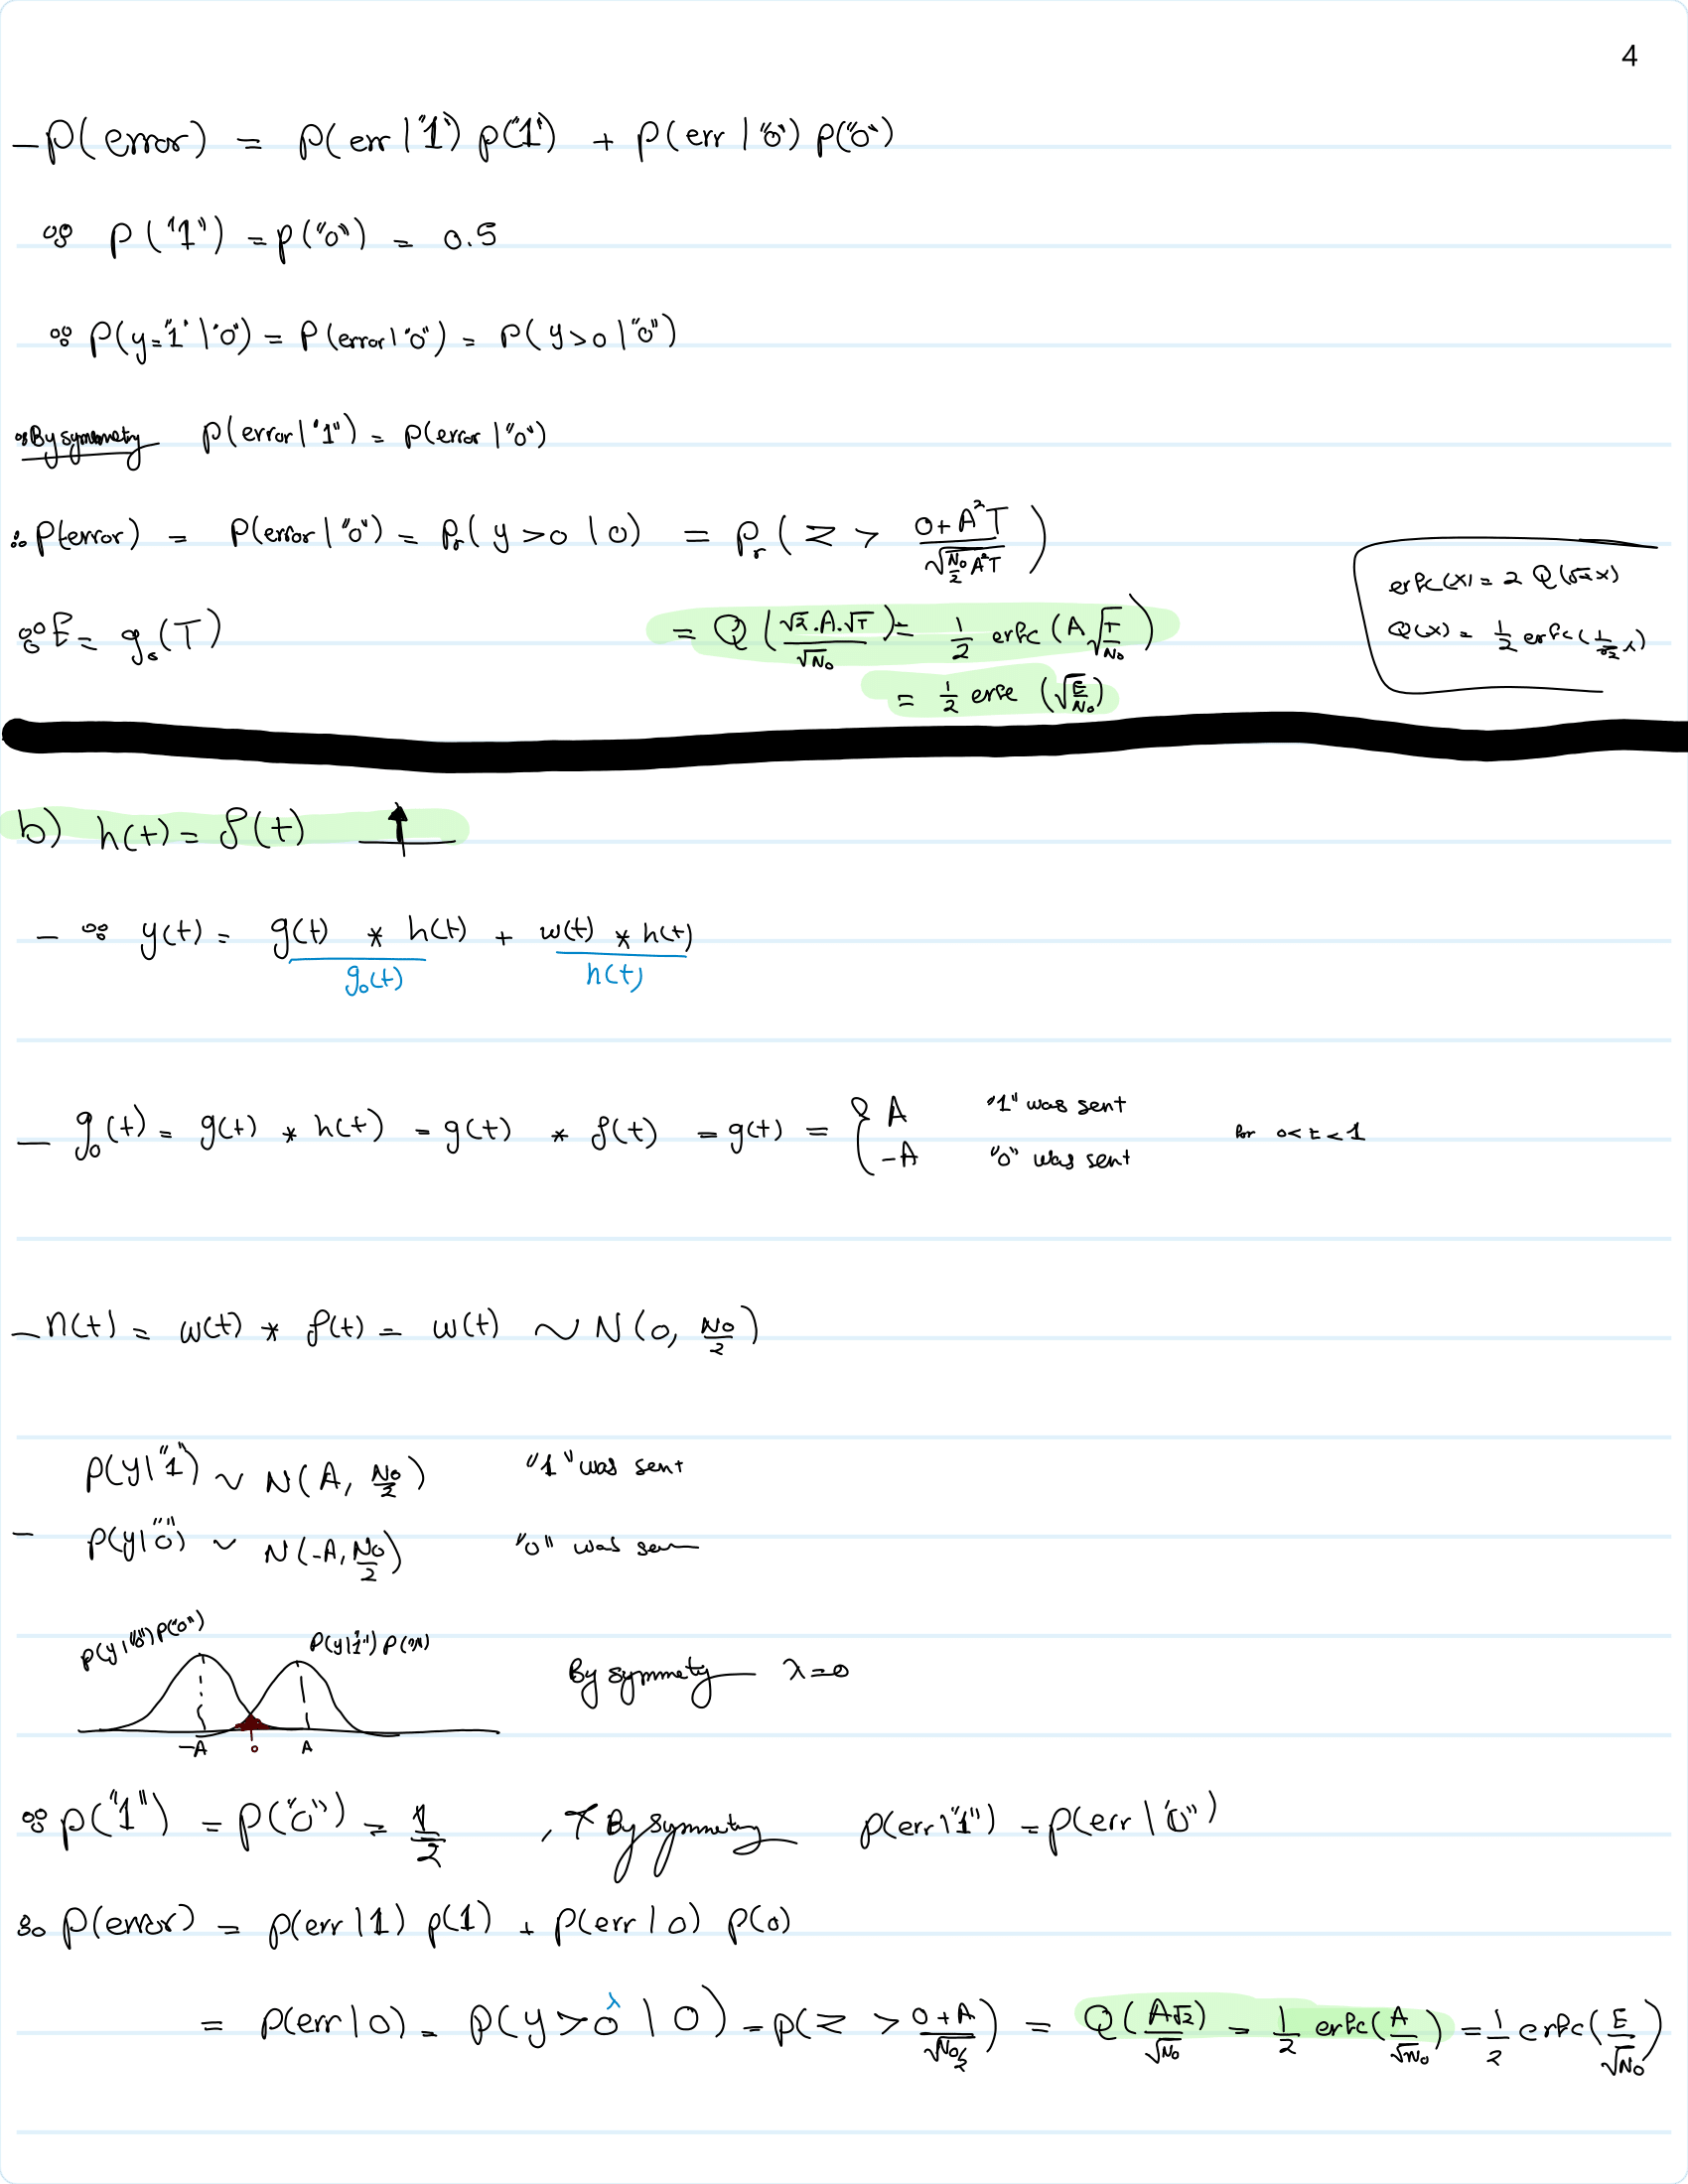 4
- P(error) = P(err | "1") P("1") + P(err | "0") P("0")
∵ P("1") = P("0") = 0.5
∵ P(y="1" | "0") = P(error | "0") = P(y>0 | "0")
∵ By symmetry P(error | "1") = P(error | "0")
∴ P(error) = P(error | "0") = Pr(y>0 | 0) = Pr(Z > (0+A²T)/√(N₀/2 A²T))
erfc(x) = 2 Q(√2 x)
∵ E = g₀(T) = Q(√2.A.√T/√N₀) = 1/2 erfc(A√(T/N₀))
Q(x) = 1/2 erfc(1/√2 x)
= 1/2 erfc(√(E/N₀))
b) h(t) = δ(t)
- ∵ y(t) = g(t) * h(t) + w(t) * h(t)
g₀(t) n(t)
- g₀(t) = g(t) * h(t) = g(t) * δ(t) = g(t) = { A "1" was sent for 0<t<1
-A "0" was sent
- n(t) = w(t) * δ(t) = w(t) ~ N(0, N₀/2)
P(y|"1") ~ N(A, N₀/2) "1" was sent
- P(y|"0") ~ N(-A, N₀/2) "0" was sen
P(y|"0") P("0") P(y|"1") P("1")
By symmety λ=0
-A 0 A
∵ P("1") = P("0") = 1/2 , By Symmetry P(err|"1") = P(err|"0")
∴ P(error) = P(err|1) P(1) + P(err|0) P(0)
λ
= P(err|0) = P(y>0 | 0) = P(Z > (0+A)/√(N₀/2)) = Q(A√2/√N₀) = 1/2 erfc(A/√N₀) = 1/2 erfc(E/√N₀)